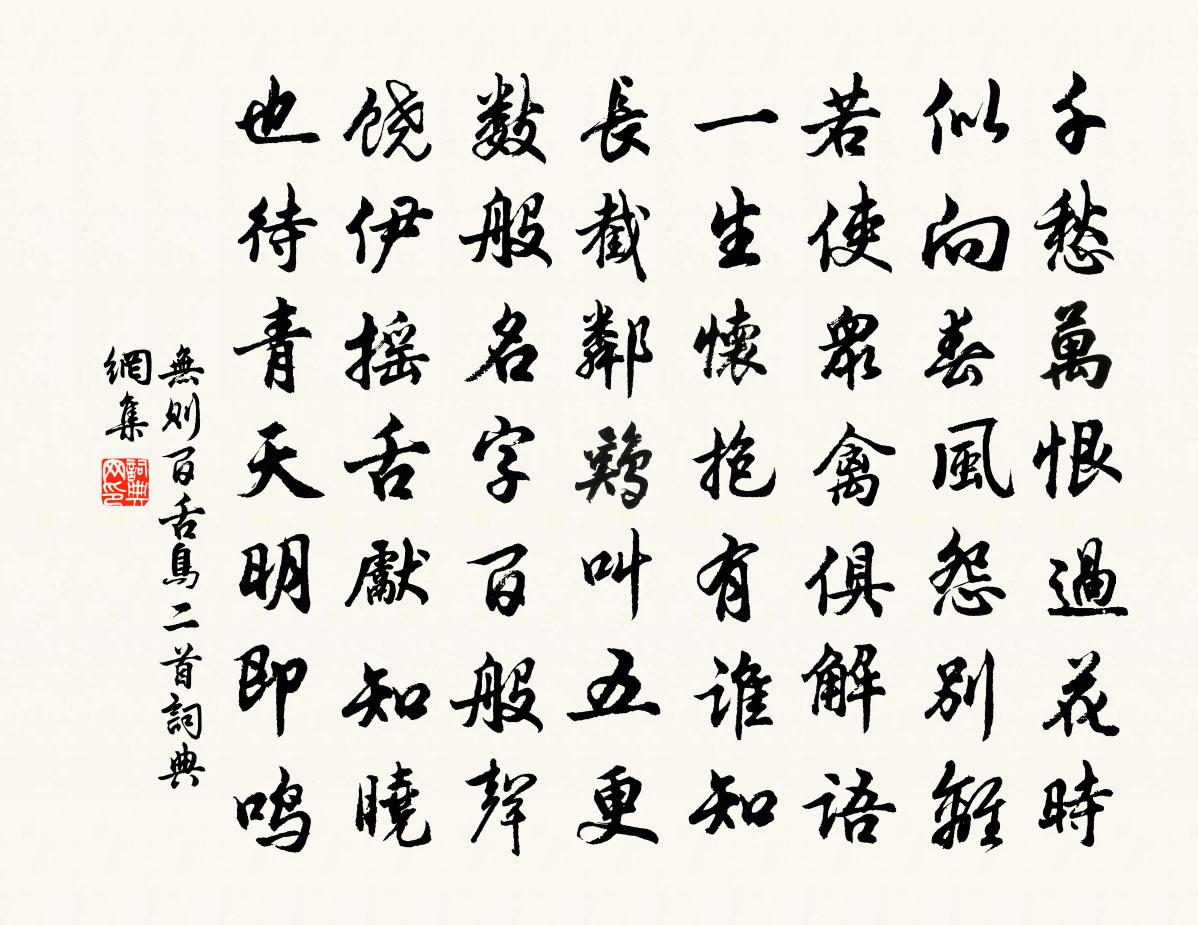 千愁萬恨過花時
似向春風怨別離
若使眾禽俱解語
一生懷抱有誰知
長截鄰鷄叫五更
數般名字百般聲
饒伊摇舌獻知曉
也待青天明即鸣
無則百舌鳥二首詞典
網集
詞典網印